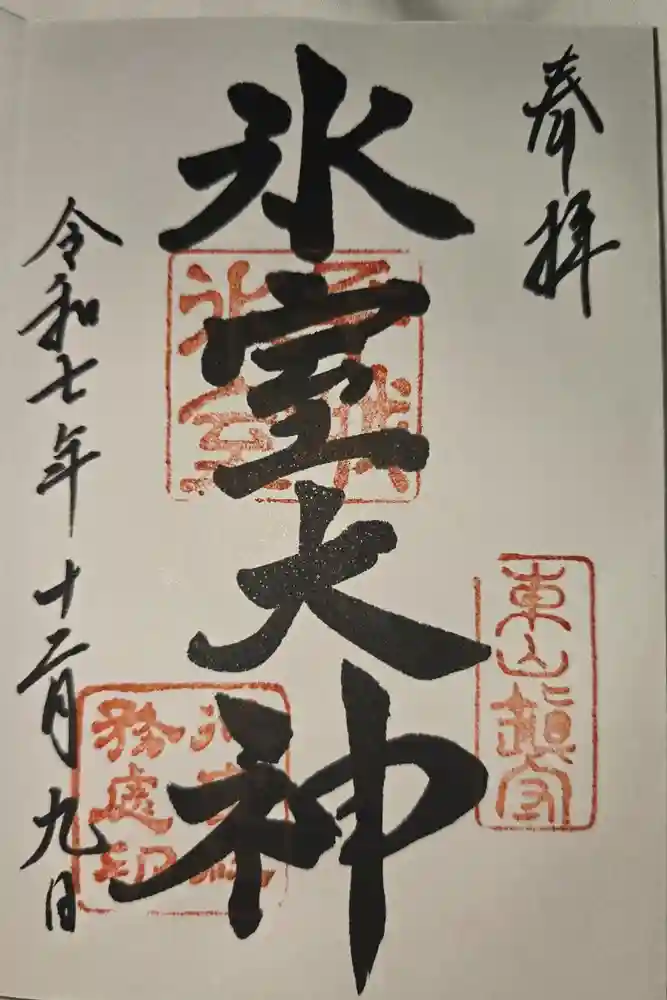 奉拝
東山鎮守
氷室大神
平城
氷室
令和七年十二月九日
氷室社
務處印